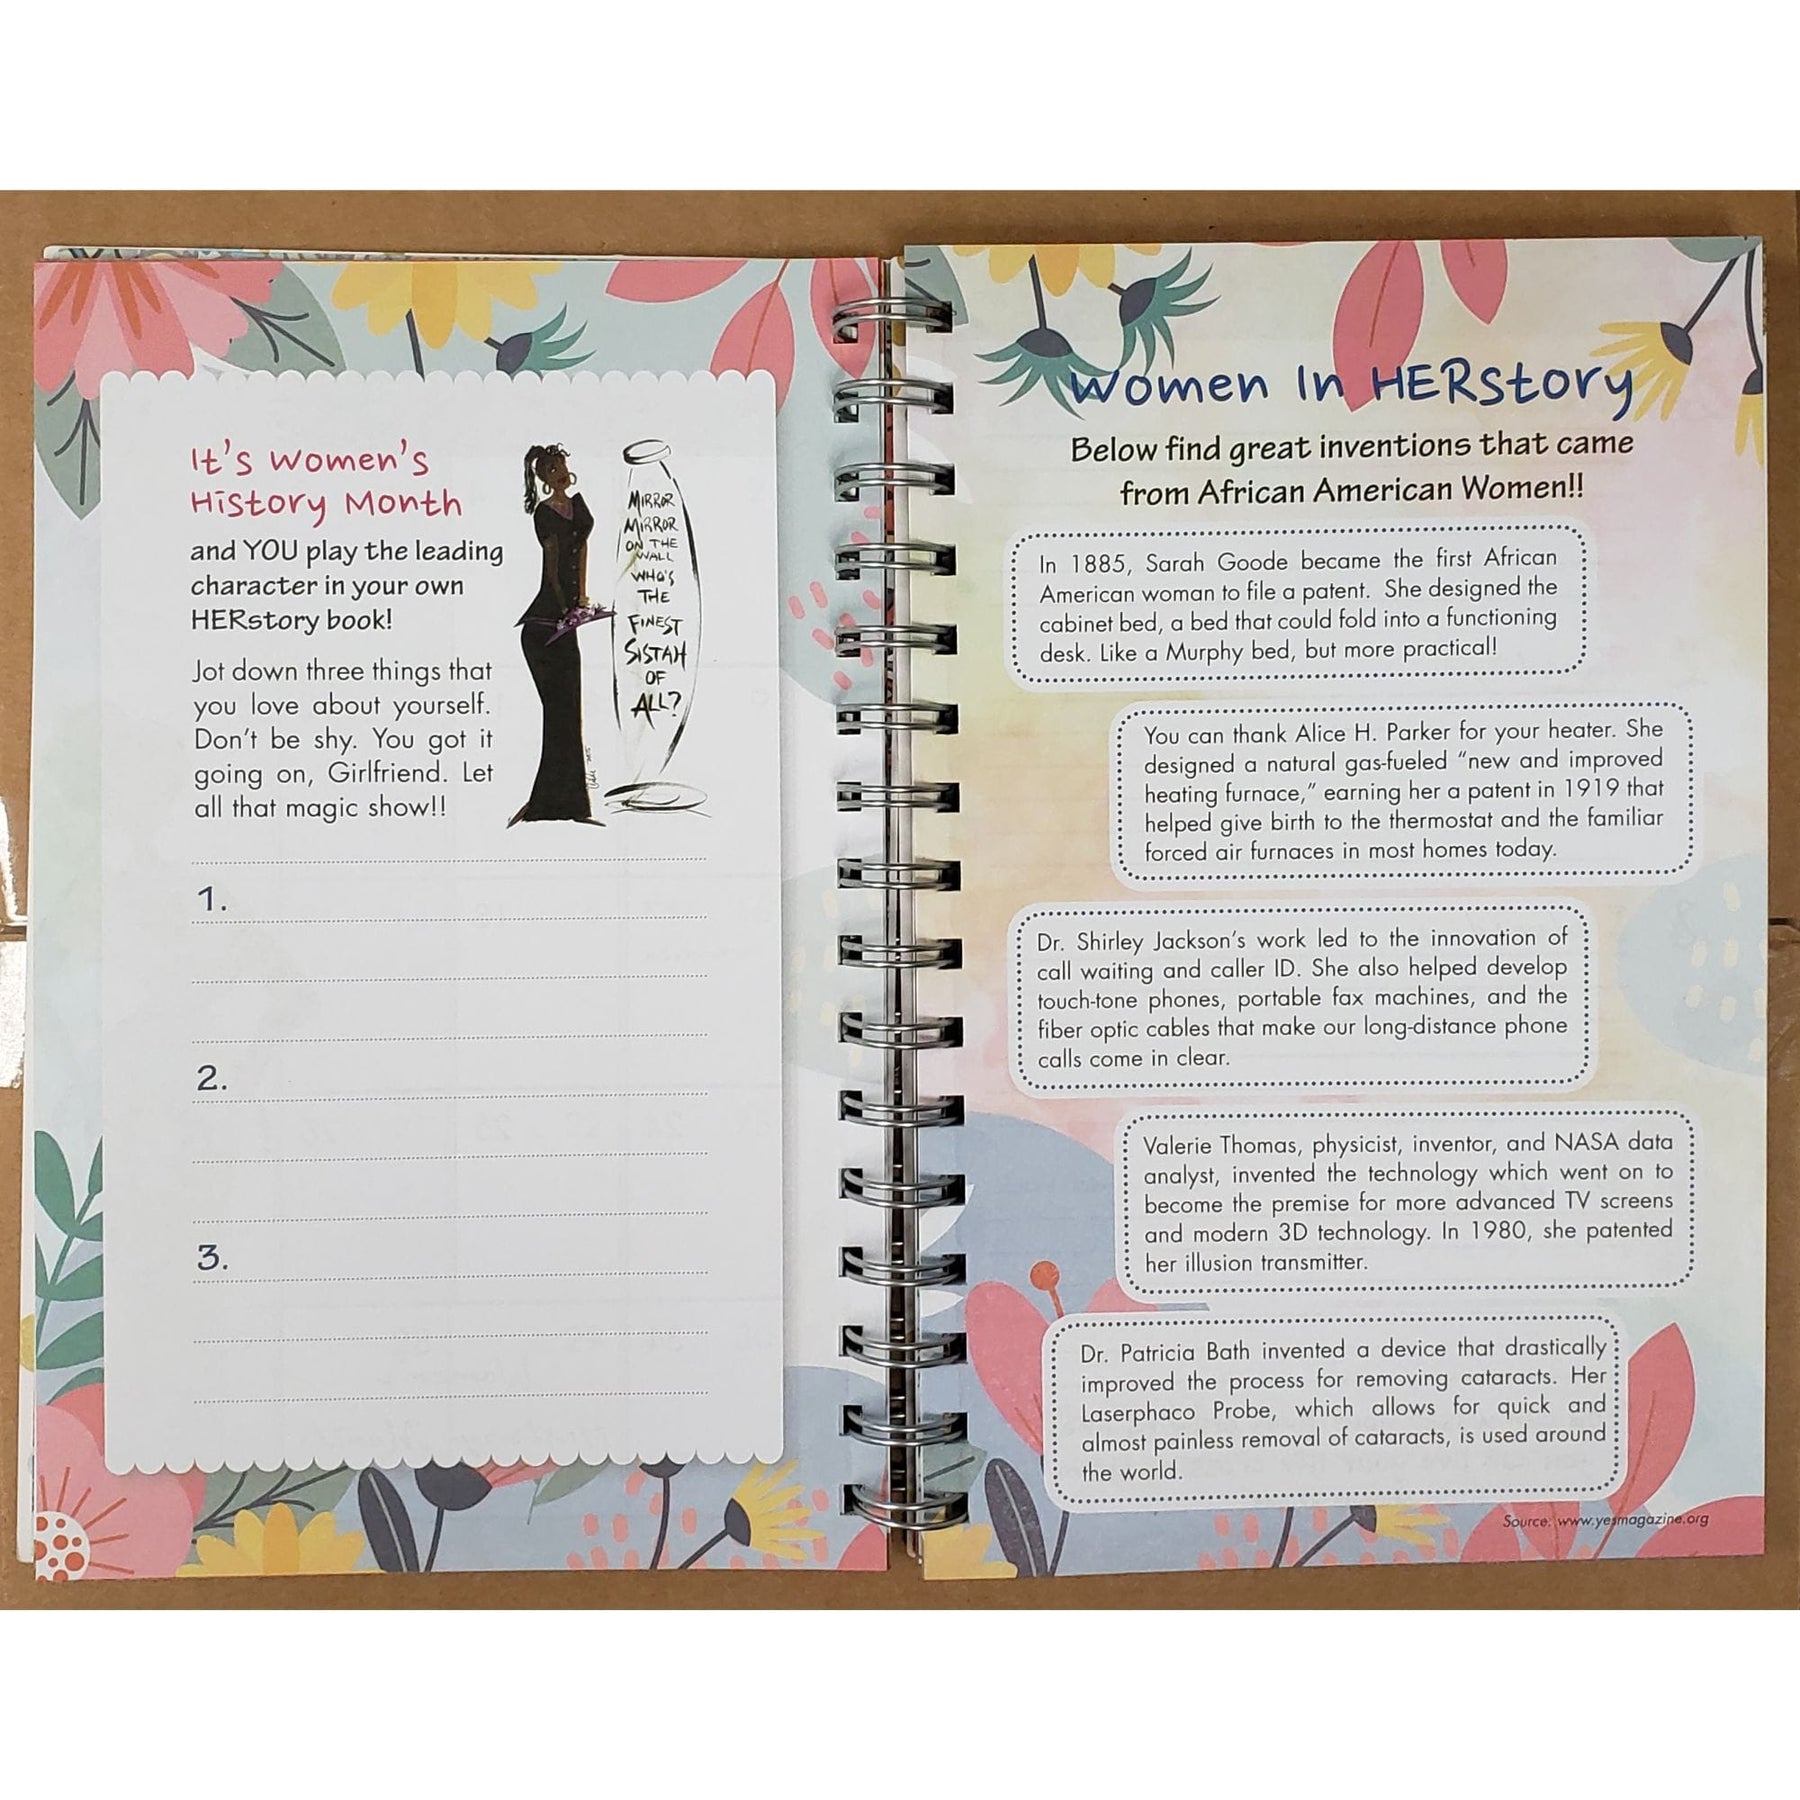 It's Women's
History Month
and YOU play the leading
character in your own
HERstory book!
Jot down three things that
you love about yourself.
Don't be shy. You got it
going on, Girlfriend. Let
all that magic show!!
MIRROR
MIRROR
ON THE
WALL
WHO'S
THE
FINEST
SISTAH
OF
ALL?
1.
2.
3.
Women In HERstory
Below find great inventions that came
from African American Women!!
In 1885, Sarah Goode became the first African
American woman to file a patent. She designed the
cabinet bed, a bed that could fold into a functioning
desk. Like a Murphy bed, but more practical!
You can thank Alice H. Parker for your heater. She
designed a natural gas-fueled "new and improved
heating furnace," earning her a patent in 1919 that
helped give birth to the thermostat and the familiar
forced air furnaces in most homes today.
Dr. Shirley Jackson's work led to the innovation of
call waiting and caller ID. She also helped develop
touch-tone phones, portable fax machines, and the
fiber optic cables that make our long-distance phone
calls come in clear.
Valerie Thomas, physicist, inventor, and NASA data
analyst, invented the technology which went on to
become the premise for more advanced TV screens
and modern 3D technology. In 1980, she patented
her illusion transmitter.
Dr. Patricia Bath invented a device that drastically
improved the process for removing cataracts. Her
Laserphaco Probe, which allows for quick and
almost painless removal of cataracts, is used around
the world.
Source: www.yesmagazine.org